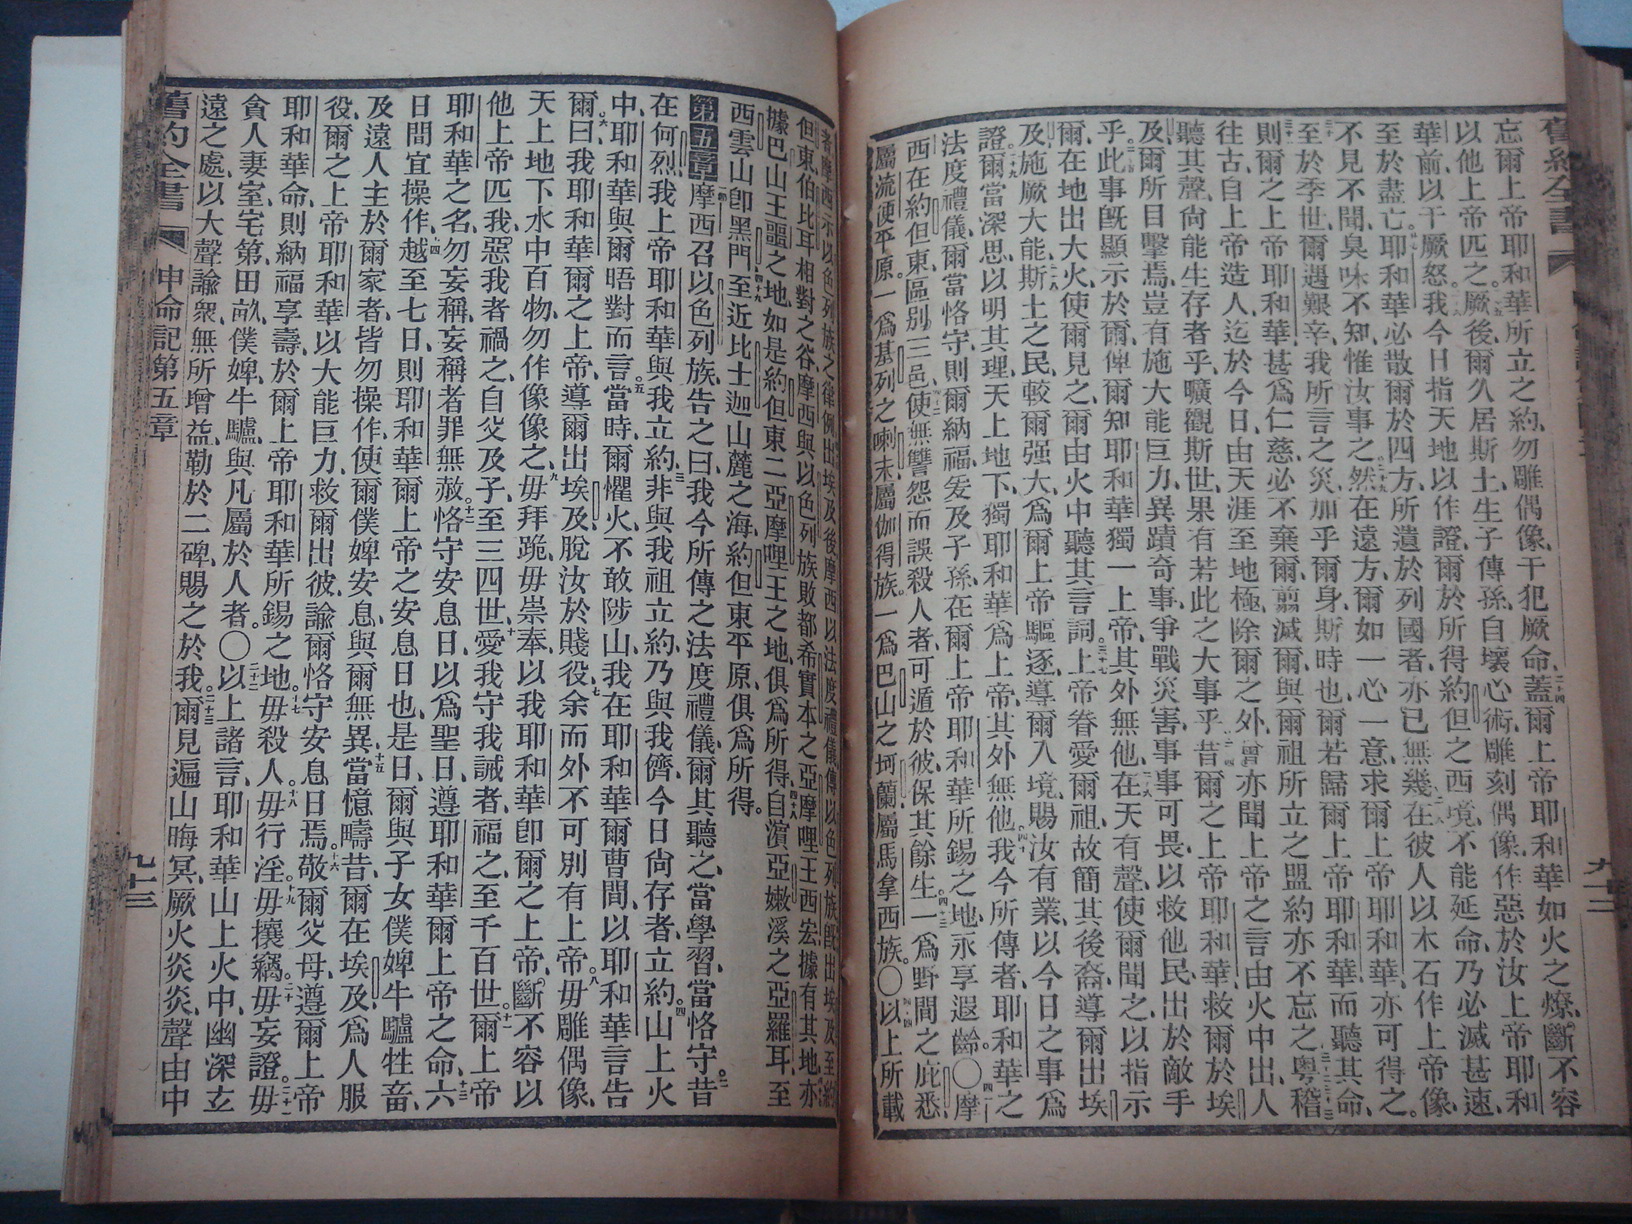 舊約全書
九十二
忘爾上帝耶和華所立之約、勿雕偶像、干犯厥命、蓋爾上帝耶和華如火之燎、斷不容
以他上帝匹之、厥後爾久居斯土、生子傳孫、自壞心術、雕刻偶像、作惡於汝上帝耶和
華前、以干厥怒、我今日指天地以作證、爾於所得約但之西境、不能延命、乃必滅甚速、
至於盡亡、耶和華必散爾於四方、所遺於列國者、亦已無幾、在彼人以木石作上帝像、
不見不聞、臭味不知、惟汝事之、然在遠方、爾如一心一意、求爾上帝耶和華、亦可得之。
至於季世、爾遘艱辛、我所言之災、加乎爾身、斯時也、爾若歸爾上帝耶和華、而聽其命、
則爾之上帝耶和華、甚爲仁慈、必不棄爾、翦滅爾、與爾祖所立之盟約、亦不忘之、粵稽
往古、自上帝造人、迄於今日、由天涯至地極、除爾之外、曾亦聞上帝之言、由火中出、人
聽其聲、尙能生存者乎、曠觀斯世、果有若此之大事乎、昔爾之上帝耶和華、救爾於埃
及、爾所目擊焉、豈有施大能巨力、異蹟奇事、爭戰災害、事事可畏、以救他民、出於敵手
乎、此事旣顯示於爾、俾爾知耶和華獨一上帝、其外無他、在天有聲、使爾聞之、以指示
爾、在地出大火、使爾見之、爾由火中聽其言詞、上帝眷愛爾祖、故簡其後裔、導爾出埃
及、施厥大能、斯土之民、較爾强大、爲爾上帝驅逐、導爾入境、賜汝有業、以今日之事爲
證、爾當深思、以明其理、天上地下、獨耶和華爲上帝、其外無他、我今所傳者、耶和華之
法度禮儀、爾當恪守、則爾納福、爰及子孫、在爾上帝耶和華所錫之地、永享遐齡。〇摩
西在約但東、區別三邑、使無讐怨而誤殺人者、可遁於彼、保其餘生、一爲野間之庇悉、
屬流便平原。一爲基列之喇末、屬伽得族。一爲巴山之坷蘭、屬馬拿西族。〇以上所載
者、摩西示以色列族之律例、出埃及後、摩西以法度禮儀、傳以色列族、旣出埃及、至約
但東、伯比耳相對之谷、摩西與以色列族敗都希實本之亞摩哩王西宏、據有其地、亦
據巴山王噩之地、如是約但東二亞摩哩王之地、俱爲所得、自濱亞嫩溪之亞羅耳、至
西雲山卽黑門、至近比士迦山麓之海、約但東平原、俱爲所得。
第五章 摩西召以色列族告之曰、我今所傳之法度禮儀、爾其聽之、當學習、當恪守。昔
在何烈、我上帝耶和華與我立約、非與我祖立約、乃與我儕今日尙存者、立約、山上火
中、耶和華與爾晤對而言。當時、爾懼火、不敢陟山、我在耶和華爾曹間、以耶和華言告
爾、曰、我耶和華爾之上帝、導爾出埃及、脫汝於賤役、余而外不可別有上帝、毋雕偶像、
天上地下水中百物、勿作像像之、毋拜跪、毋崇奉、以我耶和華卽爾之上帝、斷不容以
他上帝匹我、惡我者禍之、自父及子、至三四世、愛我守我誡者、福之、至千百世。爾上帝
耶和華之名、勿妄稱、妄稱者罪無赦。恪守安息日、以爲聖日、遵耶和華爾上帝之命、六
日間宜操作、越至七日、則耶和華爾上帝之安息日也、是日、爾與子女僕婢牛驢牲畜、
及遠人主於爾家者、皆勿操作、使爾僕婢安息、與爾無異、當憶疇昔、爾在埃及、爲人服
役、爾之上帝耶和華、以大能巨力、救爾出彼、諭爾恪守安息日焉。敬爾父母、遵爾上帝
耶和華命、則納福享壽、於爾上帝耶和華所錫之地。毋殺人。毋行淫。毋攘竊。毋妄證。毋
貪人妻室、宅第、田畝、僕婢、牛驢、與凡屬於人者。〇以上諸言、耶和華山上火中、幽深玄
遠之處、以大聲諭衆、無所增益、勒於二碑、賜之於我、爾見遍山晦冥、厥火炎炎、聲由中
舊約全書
申命記第五章
九十三